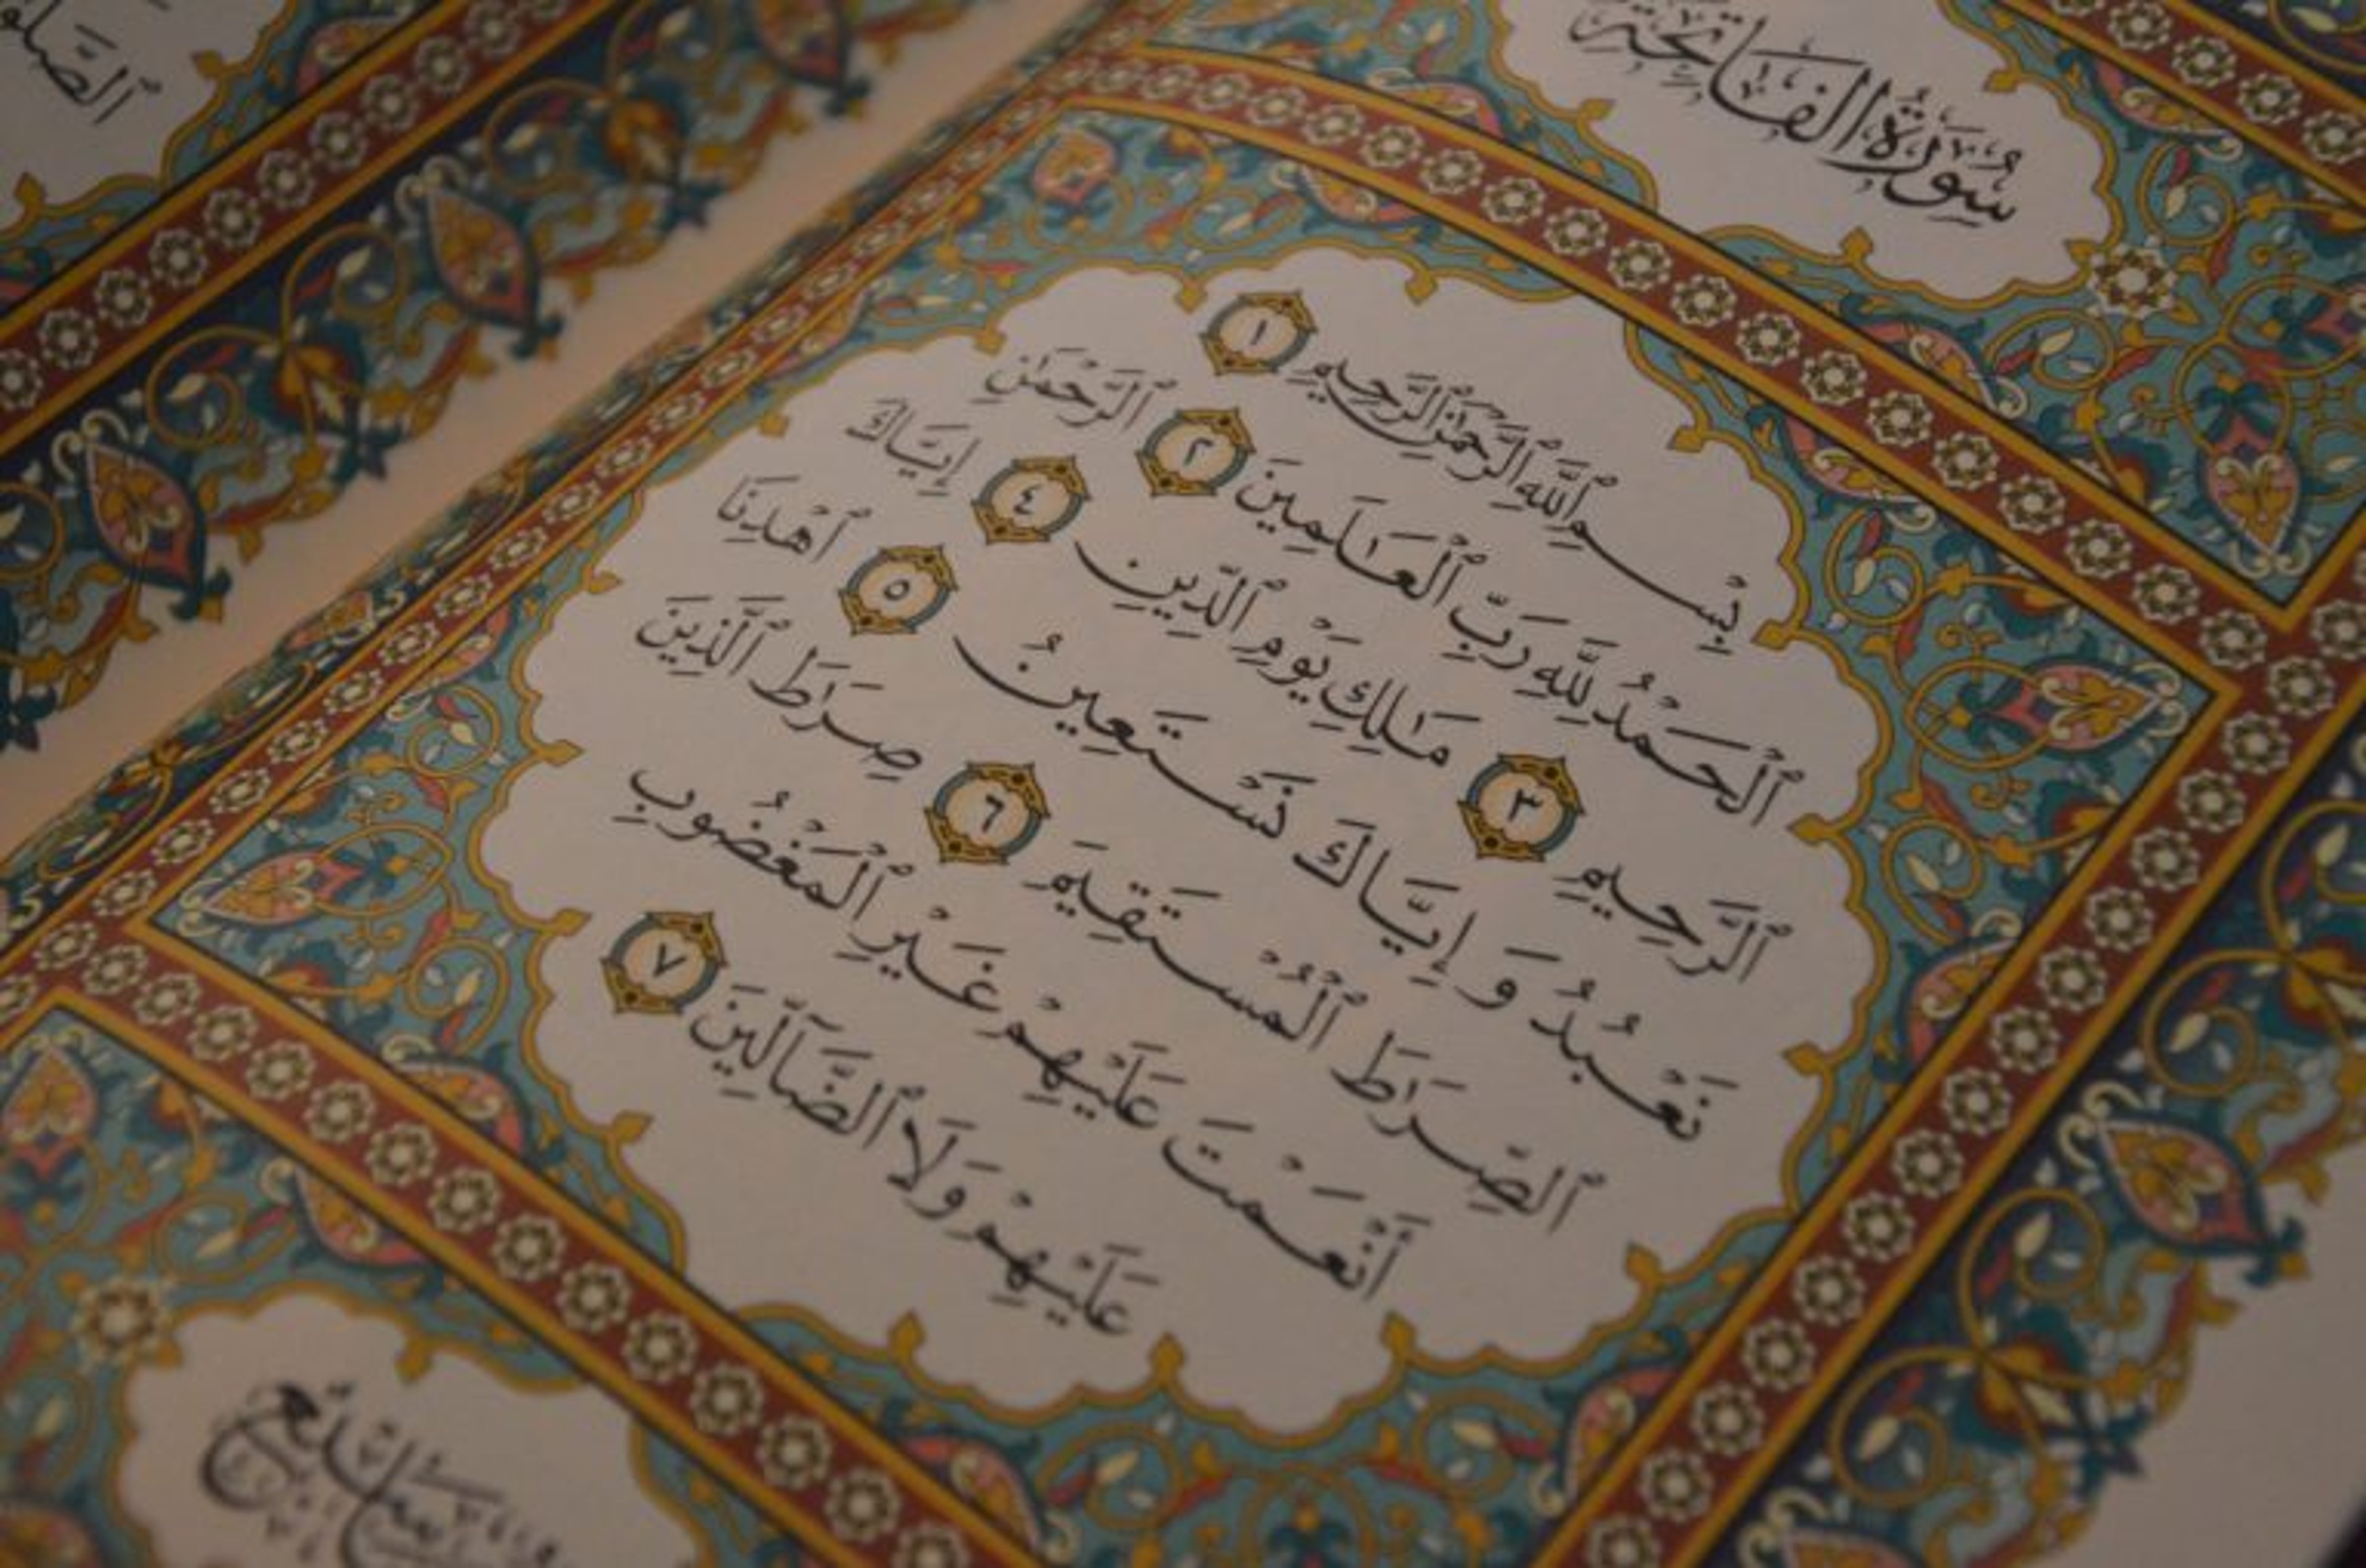 سُورَةُ الْفَاتِحَةِ
بِسْمِ ٱللَّهِ ٱلرَّحْمَٰنِ ٱلرَّحِيمِ ١
ٱلْحَمْدُ لِلَّهِ رَبِّ ٱلْعَٰلَمِينَ ٢ ٱلرَّحْمَٰنِ
ٱلرَّحِيمِ ٣ مَٰلِكِ يَوْمِ ٱلدِّينِ ٤ إِيَّاكَ
نَعْبُدُ وَإِيَّاكَ نَسْتَعِينُ ٥ ٱهْدِنَا
ٱلصِّرَٰطَ ٱلْمُسْتَقِيمَ ٦ صِرَٰطَ ٱلَّذِينَ
أَنْعَمْتَ عَلَيْهِمْ غَيْرِ ٱلْمَغْضُوبِ
عَلَيْهِمْ وَلَا ٱلضَّآلِّينَ ٧